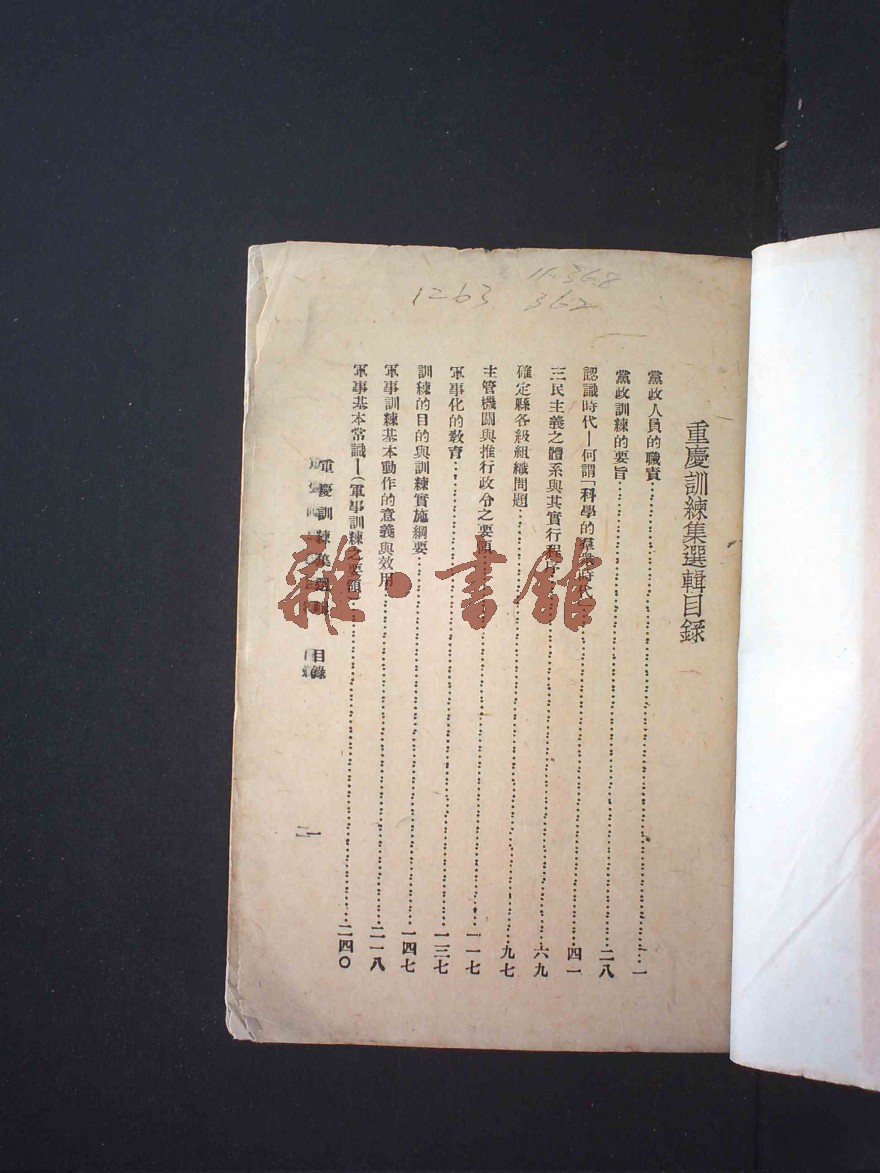 11.368
1263 362
重慶訓練集選輯目錄
黨政人員的職責……一
黨政訓練的要旨……二八
認識時代—何謂「科學的羣衆時代」……四一
三民主義之體系與其實行程序……六九
確定縣各級組織問題……九七
主管機關與推行政令之要領……一一七
軍事化的教育……一三七
訓練的目的與訓練實施綱要……一四七
軍事訓練基本動作的意義與效用……二一八
軍事基本常識—(軍事訓練之要領)……二四〇
重慶訓練集選輯 目錄
一
雜·書館